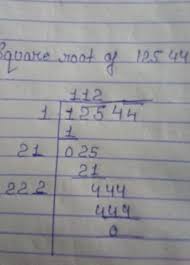 Square root of 12544
112
1 12544
1
21 025
21
222 444
444
0